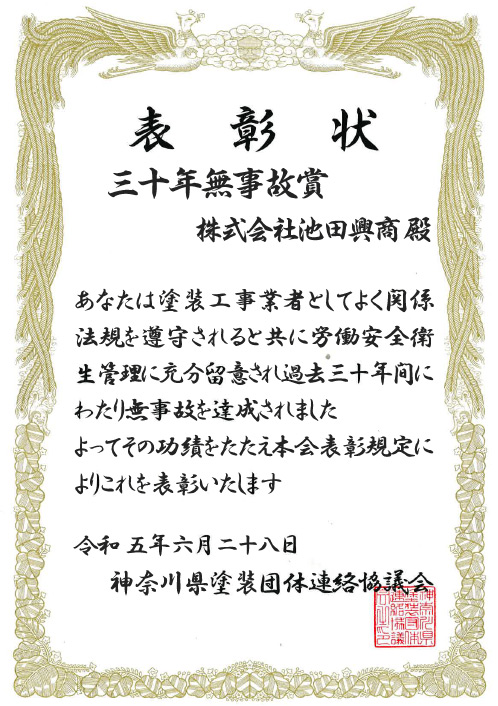 表彰状
三十年無事故賞
株式会社池田興商 殿
あなたは塗装工事業者としてよく関係
法規を遵守されると共に労働安全衛
生管理に充分留意され過去三十年間に
わたり無事故を達成されました
よってその功績をたたえ本会表彰規定に
よりこれを表彰いたします
令和 五年六月二十八日
神奈川県塗装団体連絡協議会